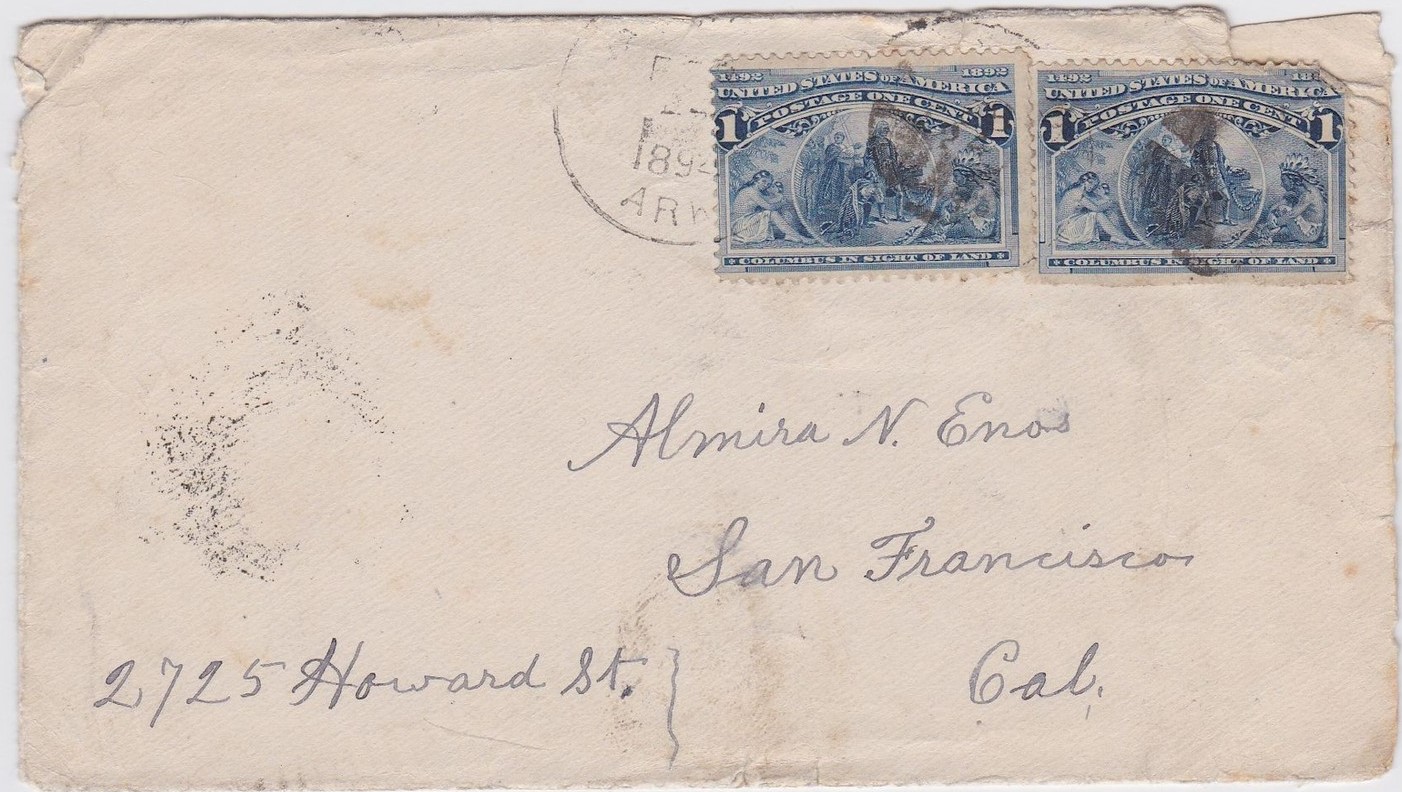 1894
ARK
1492 1892
UNITED STATES OF AMERICA
POSTAGE ONE CENT
1 1
COLUMBUS IN SIGHT OF LAND
1492
UNITED STATES OF AMERICA
POSTAGE ONE CENT
1 1
COLUMBUS IN SIGHT OF LAND
Almira N. Enos
San Francisco
Cal.
2725 Howard St.